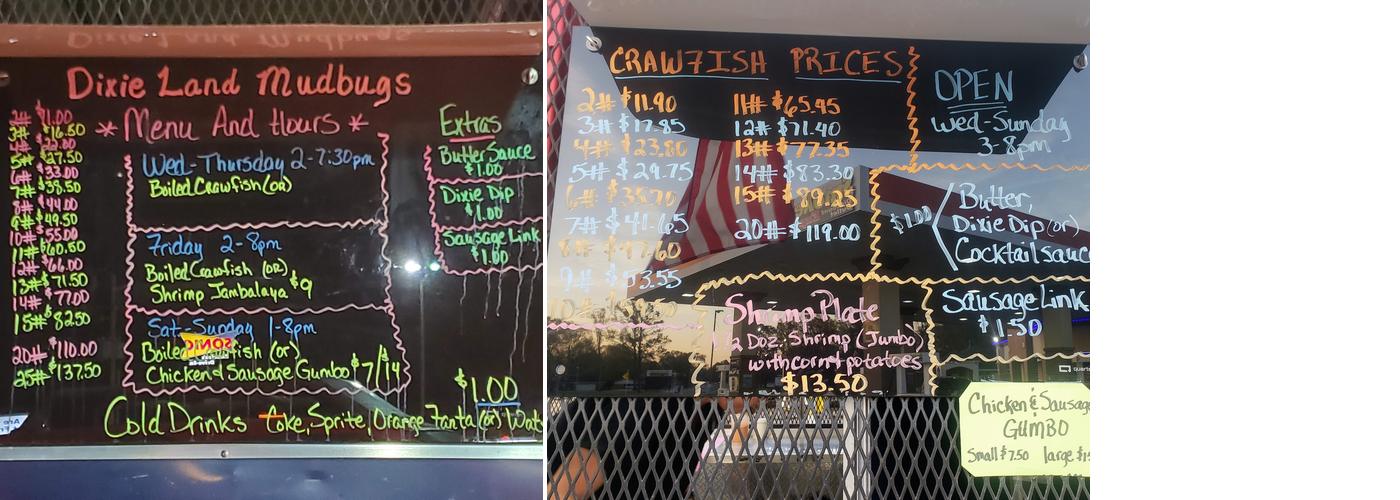 Dixie Land Mudbugs
* Menu And Hours *
2# $11.00
3# $16.50
4# $22.00
5# $27.50
6# $33.00
7# $38.50
8# $44.00
9# $49.50
10# $55.00
11# $60.50
12# $66.00
13# $71.50
14# $77.00
15# $82.50
20# $110.00
25# $137.50
Wed-Thursday 2-7:30pm
Boiled Crawfish (or)
Friday 2-8pm
Boiled Crawfish (or)
Shrimp Jambalaya $9
Sat-Sunday 1-8pm
Boiled Crawfish (or)
Chicken & Sausage Gumbo $7/14
SONIC
Extras
Butter Sauce
$1.00
Dixie Dip
$1.00
Sausage Link
$1.00
$1.00
Cold Drinks Coke, Sprite, Orange Fanta (or) Wat
CRAWFISH PRICES
2# $11.90
3# $17.85
4# $23.80
5# $29.75
6# $35.70
7# $41.65
8# $47.60
9# $53.55
10# $59.50
11# $65.45
12# $71.40
13# $77.35
14# $83.30
15# $89.25
20# $119.00
OPEN
Wed-Sunday
3-8pm
$1.00
Butter,
Dixie Dip (or)
Cocktail sauc
Sausage Link
$1.50
Shrimp Plate
1/2 Doz. Shrimp (Jumbo)
with corn & potatoes
$13.50
Chicken & Sausage
GUMBO
Small $7.50 large $15